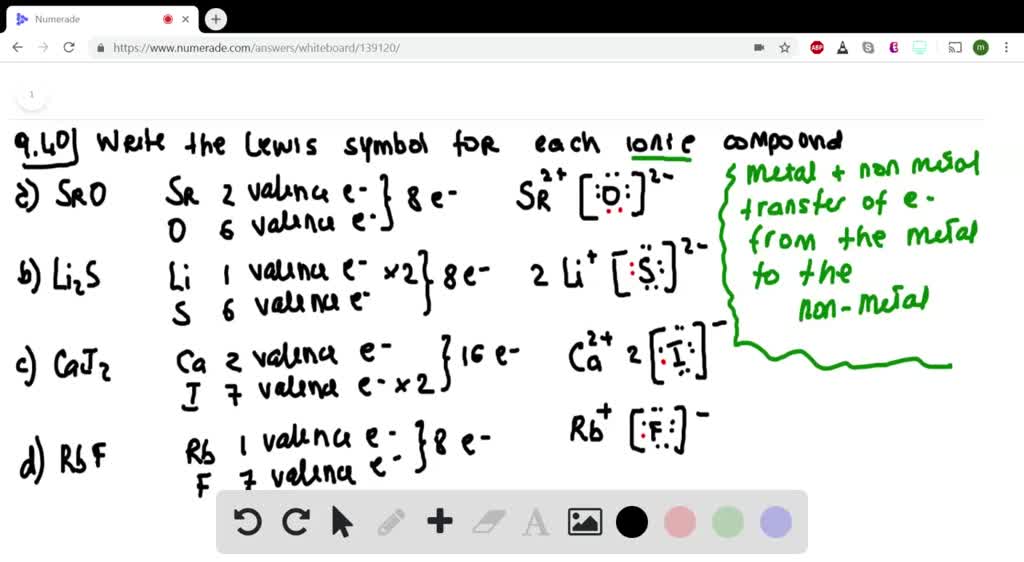 Numerade
https://www.numerade.com/answers/whiteboard/139120/
ABP
m
1
9.40] Write the Lewis symbol for each ionic compound
a) SrO Sr 2 valence e- } 8 e- Sr2+ [:O:]2-
O 6 valence e-
b) Li2S Li 1 valence e- x2 } 8 e- 2 Li+ [:S:]2-
S 6 valence e-
c) CaI2 Ca 2 valence e- } 16 e- Ca2+ 2 [:I:]-
I 7 valence e- x2
d) RbF Rb 1 valence e- } 8 e- Rb+ [:F:]-
F 7 valence e-
metal + non metal
transfer of e-
from the metal
to the
non-metal
A